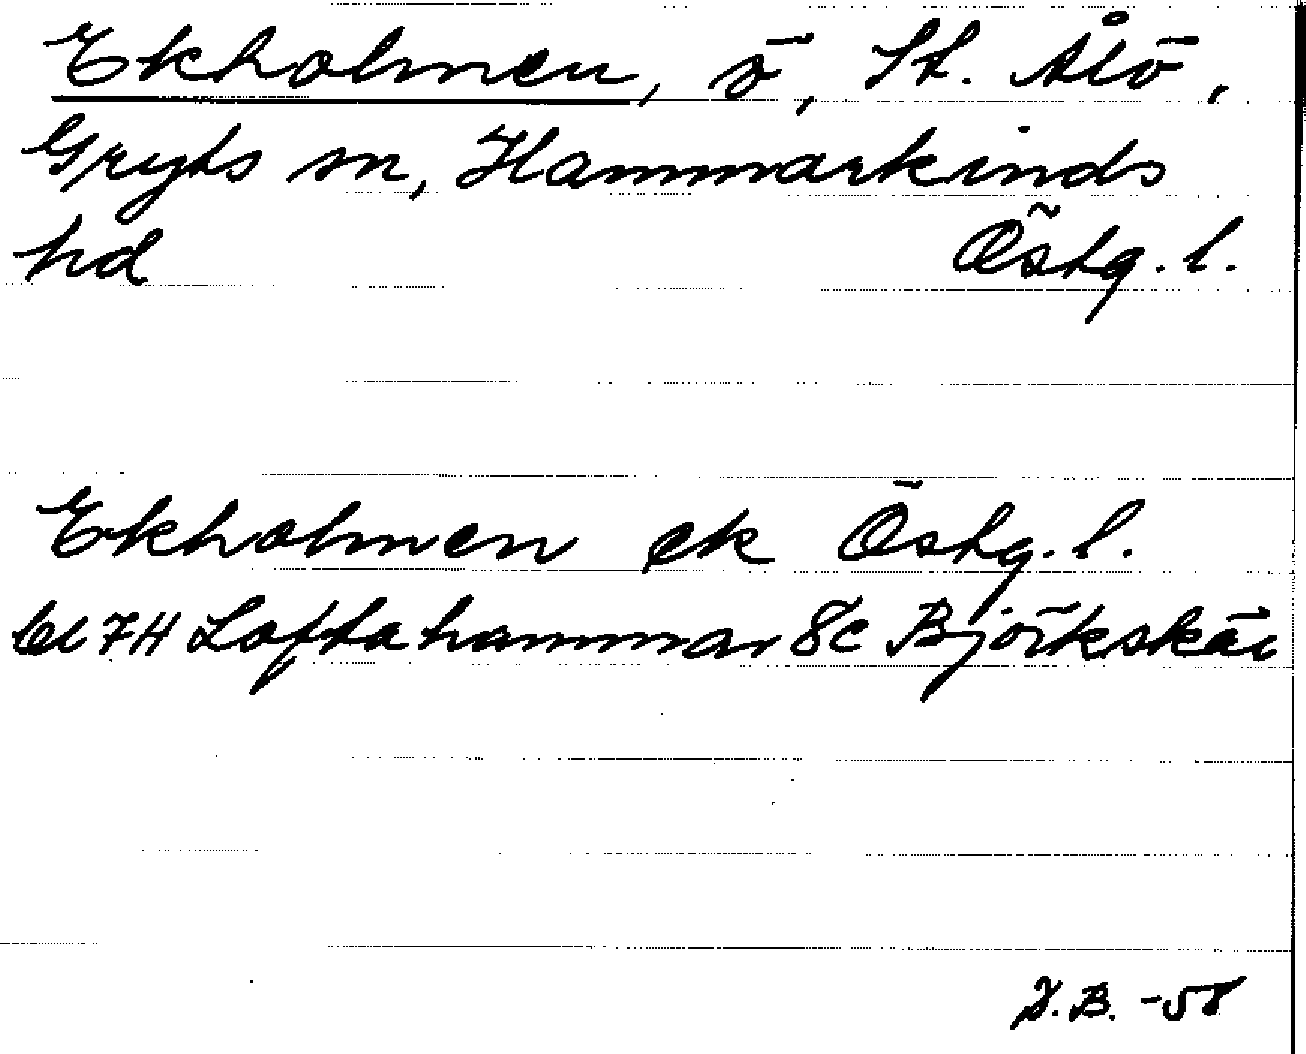 Ekholmen, ö, St. Ålö,
Gryts sn, Hammarkinds
hd Östg. l.
Ekholmen ek Östg. l.
bl 7H Loftahammar 8c Björkskär
J.B. -58